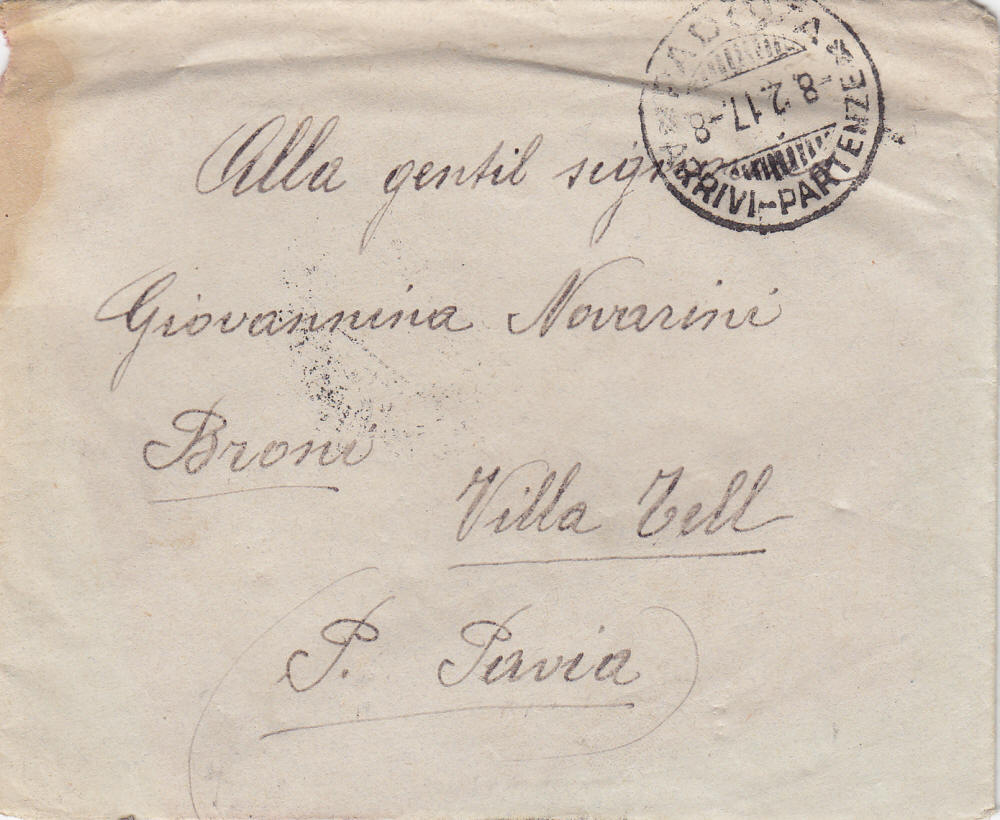 PADOVA
8.2.17.-8
ARRIVI-PARTENZE
Alla gentil
Giovannina Novarini
Broni
Villa Tell
P. Pavia